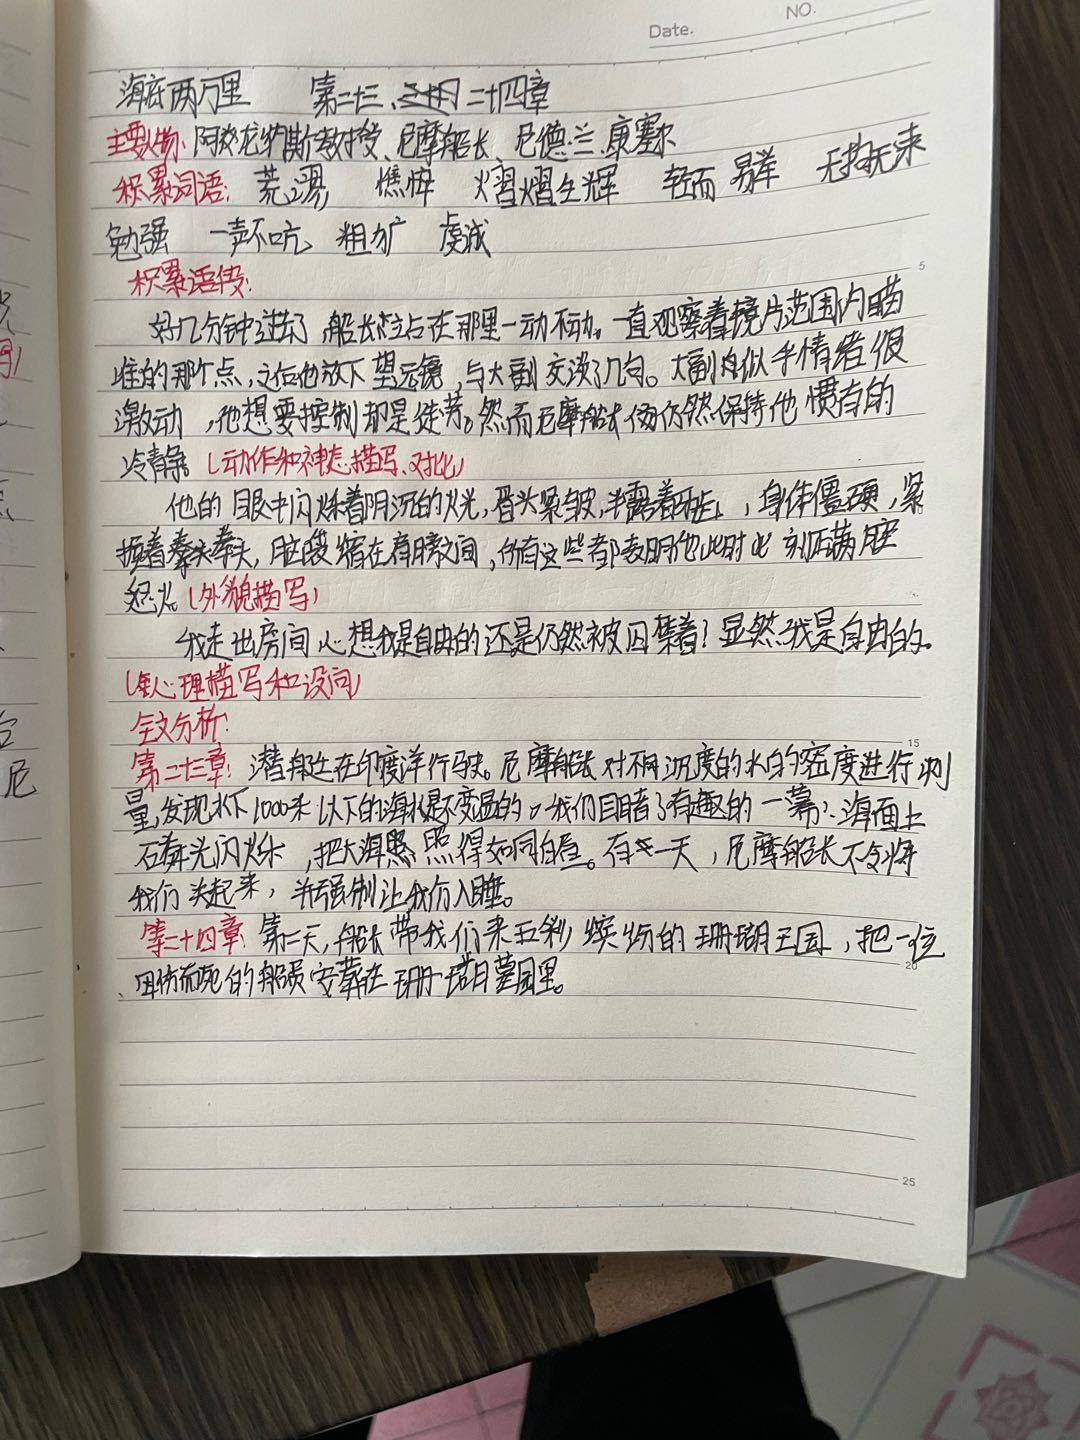 Date.
NO.
海底两万里 第二十三、二十四章
主要人物:阿龙纳斯教授、尼摩船长、尼德·兰、康塞尔
积累词语: 荒谬 憔悴 熠熠生辉 轻而易举 无拘无束
勉强 一声不吭 粗犷 虔诚
积累语段:
好几分钟过去了,船长站在那里一动不动。一直观察着镜片范围内瞄
准的那个点,之后他放下望远镜,与大副交谈了几句。大副似乎情绪很
激动,他想要控制却是徒劳。然而尼摩船长仍然保持他惯有的
冷静。(动作和神态描写、对比)
他的眼中闪烁着阴沉的火光,眉头紧皱,半露着牙齿,身体僵硬,紧
握着拳头,脑袋缩在肩膀之间,所有这些都表明他此时此刻满腔
怒火。(外貌描写)
我走出房间心想我是自由的还是仍然被囚禁着?显然我是自由的。
(心理描写和设问)
全文分析:
第二十三章:潜船正在印度洋行驶。尼摩船长对不同沉度的水的密度进行测
量,发现水下1000米以下的海水是不变温的。我们目睹了有趣的一幕:海面上
磷光闪烁,把大海照得如同白昼。有一天,尼摩船长不知将
我们关起来,并强制让我们入睡。
第二十四章:第二天,船长带我们来五彩缤纷的珊瑚王国,把一位
因伤而死的船员安葬在珊瑚墓园里。
5
15
20
25
尼